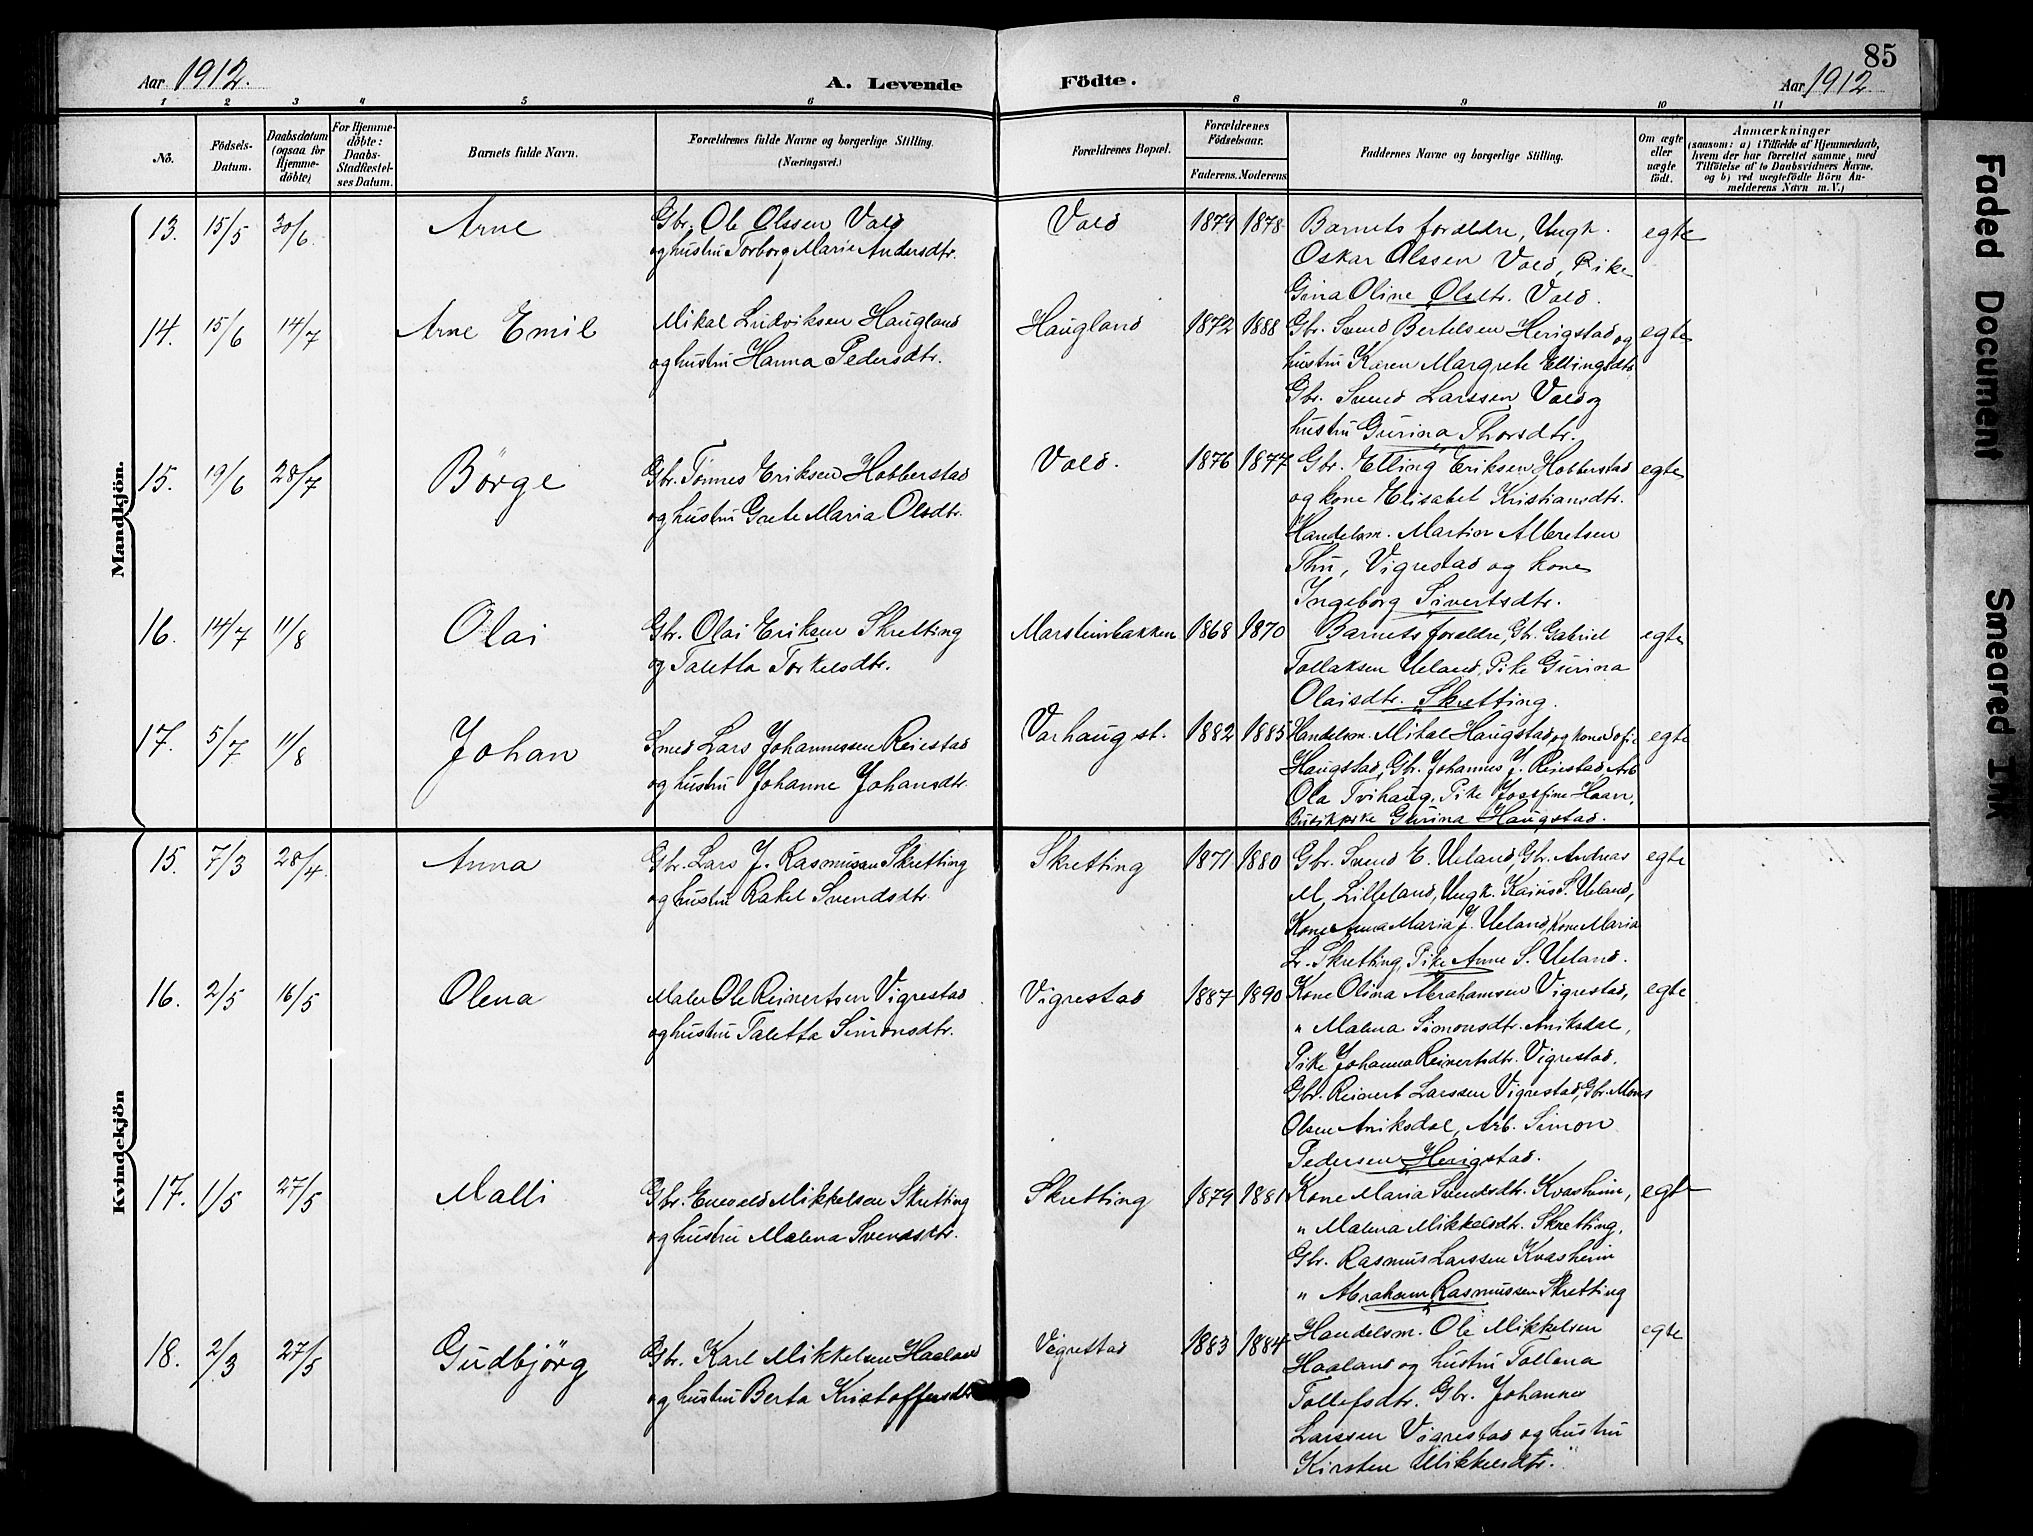 85
Aar 1912.
A. Levende Födte.
Aar 1912
1 2 3 4 5 6 8 9 10 11
Nō.
Födsels-
Datum.
Daabsdatum
(ogsaa för
Hjemme-
döbte)
For Hjemme-
döbte:
Daabs-
Stadfæstel-
ses Datum.
Barnets fulde Navn.
Forældrenes fulde Navne og borgerlige Stilling.
(Næringsvei.)
Forældrenes Bopæl.
Forældrenes
Födselsaar.
Faderens. Moderens.
Faddernes Navne og borgerlige Stilling.
Om ægte
eller
uægte
födt.
Anmærkninger
(saasom: a) i Tilfælde af Hjemmedaab,
hvem der har forrettet samme, med
Tilföielse af to Daabsvidners Navne,
og b) ved uægtefödte Börn An-
melderens Navn m. V.)
Mandkjön.
13. 15/5 30/6. Arne
Gbr. Ole Olssen Vold
og hustru Torborg Marie Andersdtr.
Vold 1879 1878
Barnets foraldre, Ungk.
Oskar Olssen Vold, Pike
Gina Oline Olsdtr. Vold.
egte
14. 15/6 14/7 Arne Emil
Mikal Ludviksen Haugland
og hustru Hanna Pedersdtr.
Haugland 1872 1888
Gbr. Svend Bertelsen Herigstad og
hustru Karen Margrete Ellingsdtr.
Gbr. Svend Larssen Vold og
hustru Gurina Thorsdtr.
egte
15. 19/6 28/7 Börge
Gbr. Tönnes Eriksen Hobberstad
og hustru Grete Maria Olsdtr.
Vold. 1876 1877
Gbr. Elling Eriksen Hobberstad
og kone Elisabet Kristiansdtr.
Handelsm. Martin Albretsen
Thu, Vigrestad og kone
Ingeborg Sivertsdtr.
egte
16. 14/7 11/8 Olai
Gbr. Olai Eriksen Skretting
og Taletta Torkelsdtr.
Marsteinbakken 1868 1870
Barnets foraldre, Gbr. Gabriel
Tollaksen Ueland, Pike Gurina
Olaisdtr. Skretting.
egte
17. 5/7 11/8 Johan
Smed Lars Johannessen Reiestad
og hustru Johanne Johansdtr.
Varhaug st. 1882 1885
Handelsm. Mikal Haugstad og kone Sofie
Haugstad, Gbr. Johannes J. Reiestad Arb
Ola Tvihaug, Pike Josefine Haan,
Gurina Haugstad.
egte
Kvindekjön
15. 7/3 28/4. Anna
Gbr. Lars J. Rasmussen Skretting
og hustru Rakel Svendsdtr.
Skretting 1871 1880
Gbr. Svend E. Ueland, Gbr. Andreas
M. Lilleland, Ungk. Kainus S. Ueland,
Kone Anna Maria J. Ueland, Kone Maria
L. Skretting, Pike Anne S. Ueland.
egte
16. 2/5 16/5 Olena
Maler Ole Reinertsen Vigrestad
og hustru Taletta Simonsdtr.
Vigrestad 1887 1890
Kone Olina Abrahamsen Vigrestad,
" Malena Simonsdtr. Aniksdal,
Pike Johanna Reinertsdtr. Vigrestad,
Gbr. Reinert Larssen Vigrestad, Gbr. Mons
Olsen Aniksdal, Arb. Simon
Pedersen Herigstad.
egte
17. 1/5 27/5 Malli
Gbr. Enevald Mikkelsen Skretting
og hustru Malena Svendsdtr.
Skretting 1879 1881
Kone Maria Svendsdtr. Kvasheim,
" Malena Mikkelsdtr. Skretting,
Gbr. Rasmus Larssen Kvasheim
" Abraham Rasmussen Skretting
egte
18. 2/3 27/5 Gudbjörg
Gbr. Karl Mikkelsen Haaland
og hustru Berta Kristoffersdtr
Vigrestad 1883 1884
Handelsm. Ole Mikkelsen
Haaland og hustru Tollena
Tollefsdtr. Gbr. Johannes
Larssen Vigrestad og hustru
Kirsten Mikkelsdtr.
egte
Faded Document
Smeared Ink